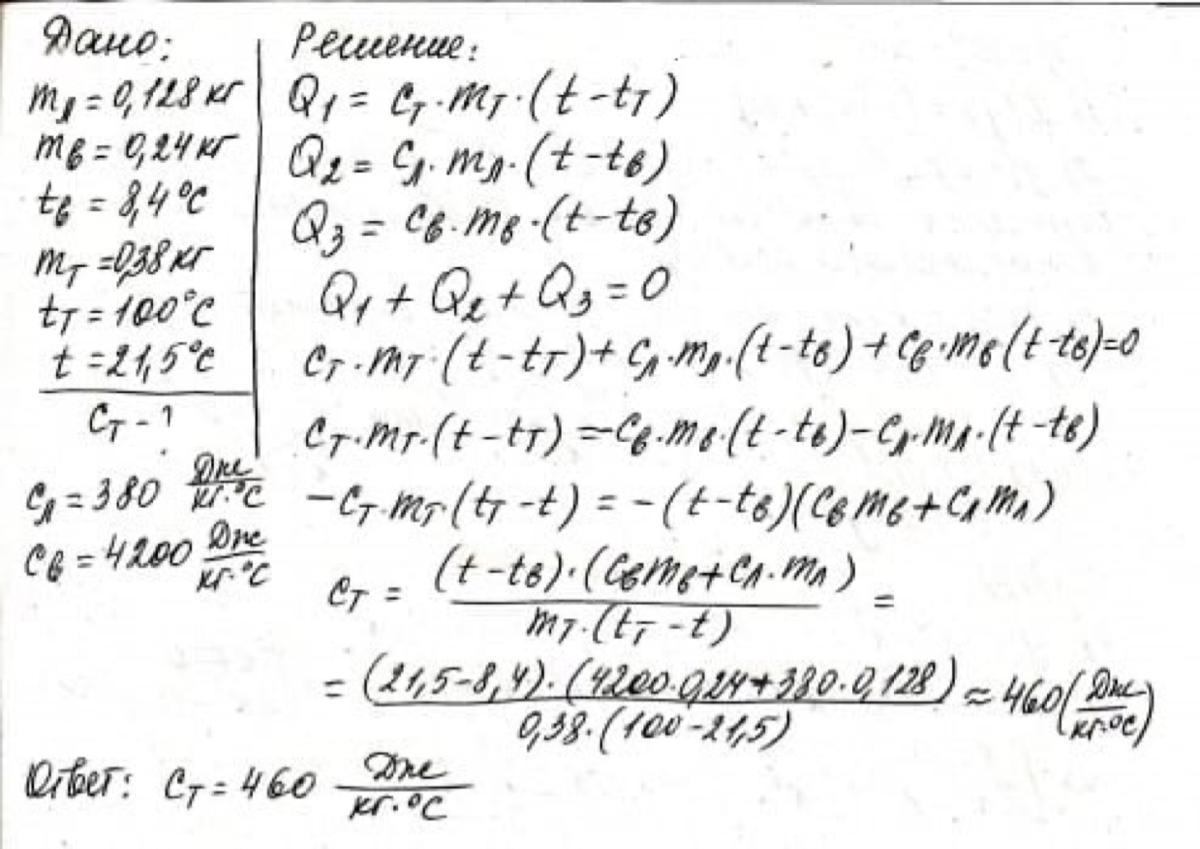 Дано:
mл = 0,128 кг
mв = 0,24 кг
tв = 8,4 °C
mт = 0,38 кг
tт = 100 °C
t = 21,5 °C
Cт - ?
Cл = 380 Дж/кг·°C
Cв = 4200 Дж/кг·°C
Решение:
Q1 = Cт·mт·(t - tт)
Q2 = Cл·mл·(t - tв)
Q3 = Cв·mв·(t - tв)
Q1 + Q2 + Q3 = 0
Cт·mт·(t - tт) + Cл·mл·(t - tв) + Cв·mв(t - tв) = 0
Cт·mт·(t - tт) = -Cв·mв·(t - tв) - Cл·mл·(t - tв)
-Cт·mт·(tт - t) = -(t - tв)(Cвmв + Cлmл)
Cт = (t - tв)·(Cвmв + Cл·mл) / mт·(tт - t) =
= (21,5 - 8,4)·(4200·0,24 + 380·0,128) / 0,38·(100 - 21,5) ≈ 460 (Дж/кг·°C)
Ответ: Cт = 460 Дж/кг·°C